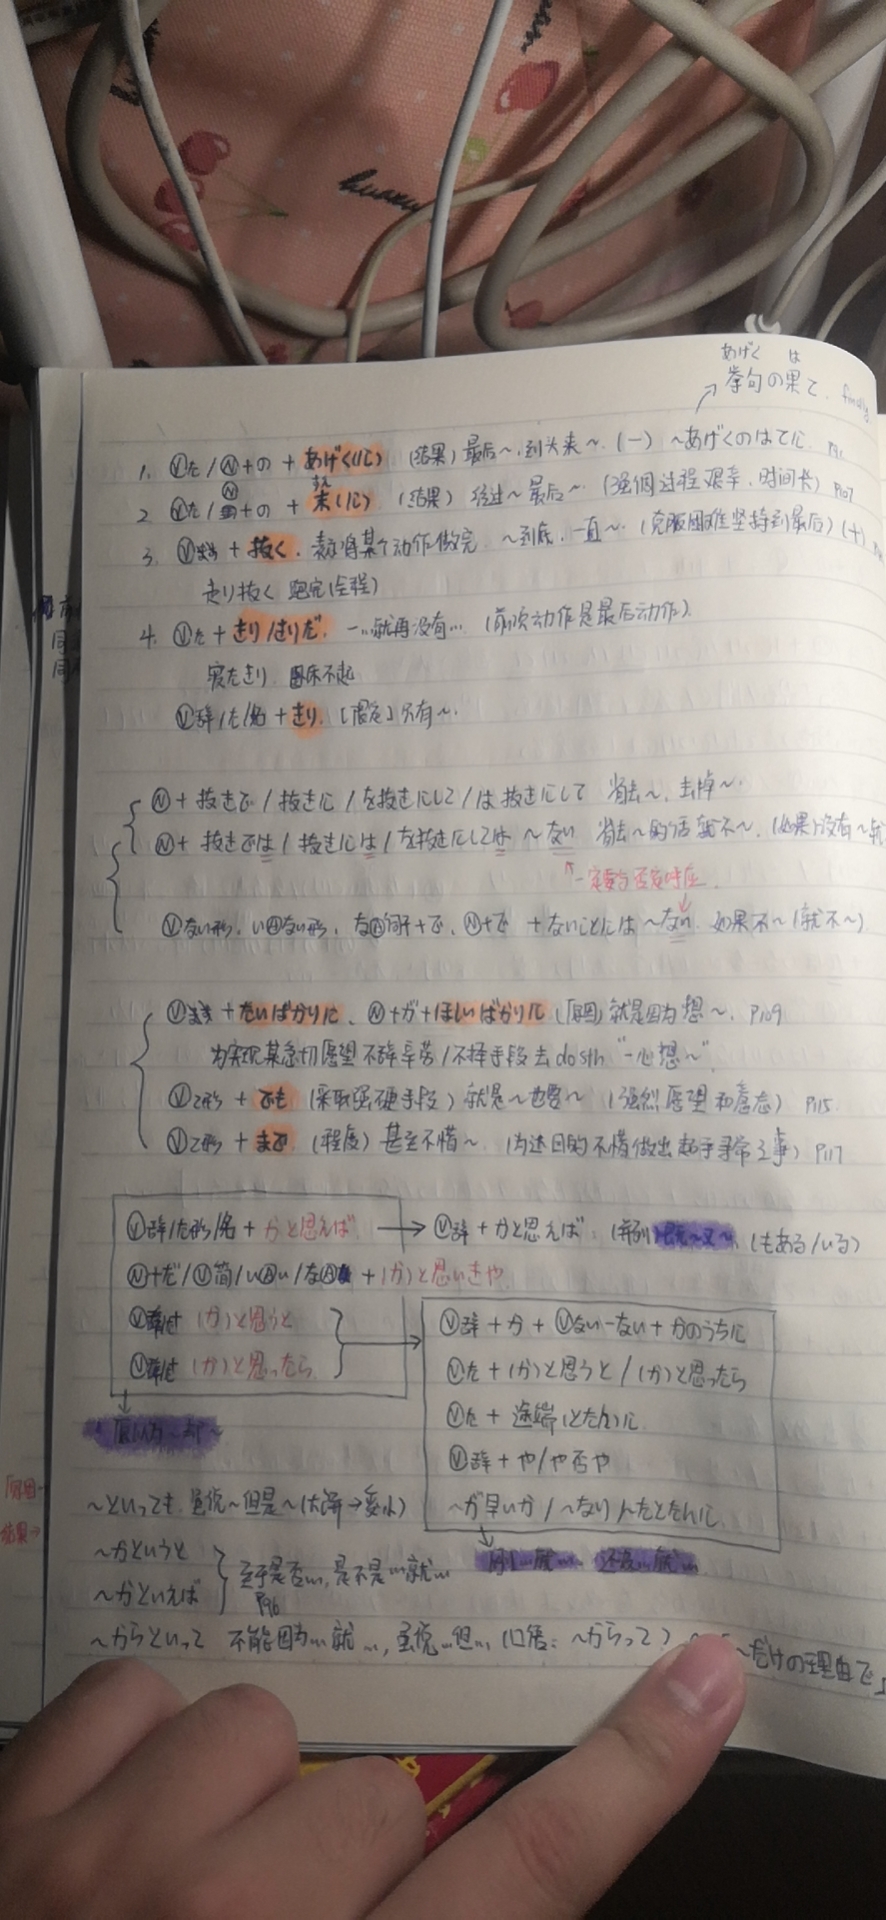 あげく は
挙句の果て. finally
1. Ⓥた/Ⓝ+の + あげく(に) (结果) 最后~, 到头来~. (一) ~あげくのはてに.
2 Ⓥた/Ⓝ+の + 末(に) (结果) 经过~最后~. (强调过程艰辛, 时间长) P107
3. Ⓥます + 抜く. 表示将某个动作做完. ~到底, 一直~. (克服困难坚持到最后) (+)
走り抜く 跑完(全程)
4. Ⓥた + きり/きりだ. 一...就再没有... (前项动作是最后动作).
寝たきり. 卧床不起
Ⓥ辞/た/名 + きり. [限定] 只有~.
Ⓝ+ 抜きで / 抜きに / を抜きにして / は抜きにして 省去~, 去掉~.
Ⓝ+ 抜きでは / 抜きには / を抜きにしては ~ない 省去~的话就不~. (如果)没有~就
一定要与否定呼应.
Ⓥない形. いⒶない形. なⒶ词干+で. Ⓝ+で +ないことには~ない. 如果不~(就不~)
Ⓥます +たいばかりに、Ⓝ+が+ほしいばかりに (原因) 就是因为想~. P109
为实现某急切愿望不辞辛劳/不择手段去do sth "一心想~"
Ⓥて形 + でも (采取强硬手段) 就是~也要~ (强烈愿望和意志) P115
Ⓥて形 + まで (程度) 甚至不惜~ (为达目的不惜做出超乎寻常之事) P117
Ⓥ辞/た形/名 + かと思えば → Ⓥ辞 + かと思えば. (并列) 既~又~. (もある/いる)
Ⓝ+だ/Ⓥ简/いⒶい/なⒶ + (か)と思いきや
(か)と思うと
(か)と思ったら
Ⓥ辞 + か + Ⓥない-ない + かのうちに
Ⓥた + (か)と思うと / (か)と思ったら
Ⓥた + 途端(とたん)に
Ⓥ辞 + や/や否や
~が早いか / ~なり/~たとたんに
~といっても 虽说~但是~
~かというと
~かといえば
至于是否..., 是不是...就...
P96
~からといって 不能因为...就..., 虽说...但... (口语: ~からって)
~だけの理由で」